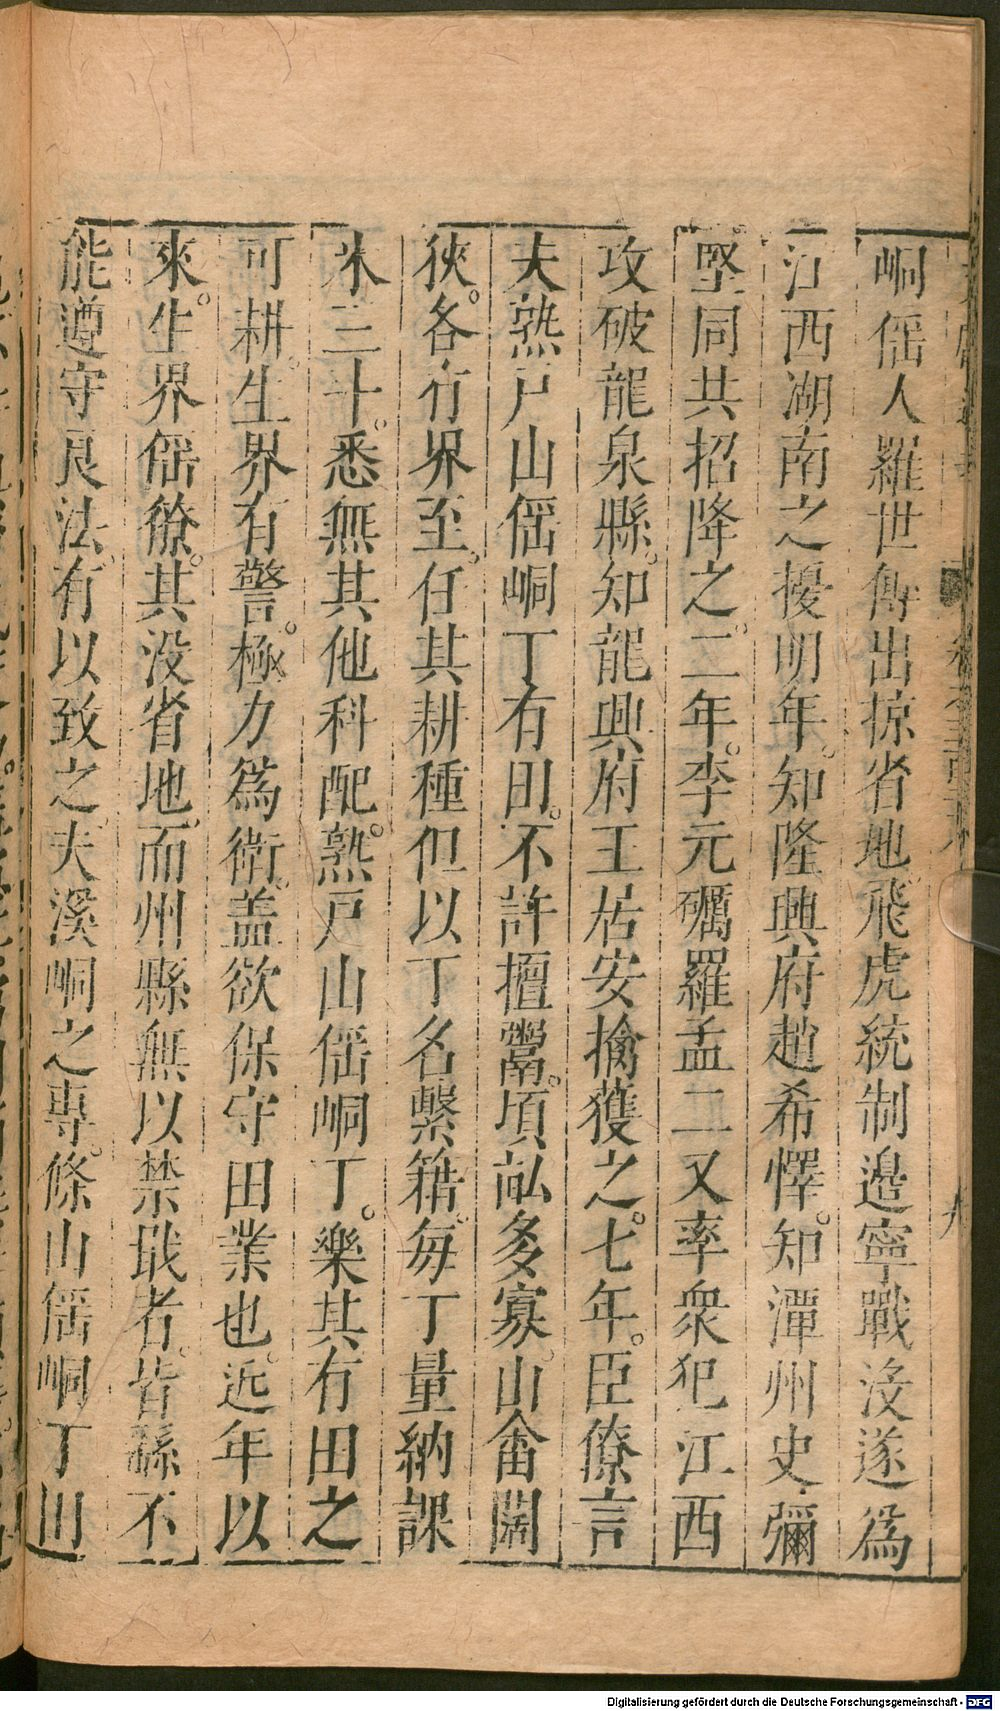 峒傜人羅世傳出掠省地飛虎統制邊寧戰沒遂爲
江西湖南之擾明年。知隆興府趙希懌。知潭州史彌
堅同共招降之。二年。李元礪羅孟二又率衆犯江西
攻破龍泉縣。知龍興府王居安擒獲之。七年。臣僚言
夫熟戸山傜峒丁有田。不許擅鬻。頃畝多寡。山畬闊
狹。各有界至。任其耕種但以丁名繫籍。每丁量納課
米三十。悉無其他科配。熟戸山傜峒丁。樂其有田之
可耕。生界有警。極力爲衛。盖欲保守田業也。近年以
來。生界傜獠。其没省地。而州縣無以禁戢者。皆繇不
能遵守良法。有以致之。夫溪峒之專。條山傜峒丁田
Digitalisierung gefördert durch die Deutsche Forschungsgemeinschaft - DFG